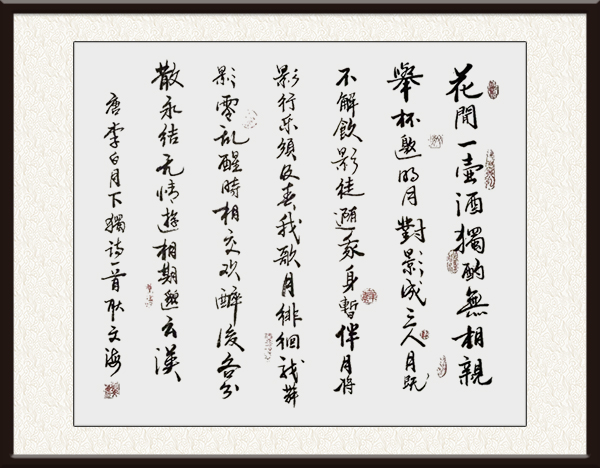 花間一壺酒獨酌無相親
舉杯邀明月對影成三人月既
不解飲影徒隨我身暫伴月将
影行乐須及春我歌月徘徊我舞
影零乱醒時相交欢醉後各分
散永結无情遊相期邈云漢
唐李白月下獨诗一首耿文海